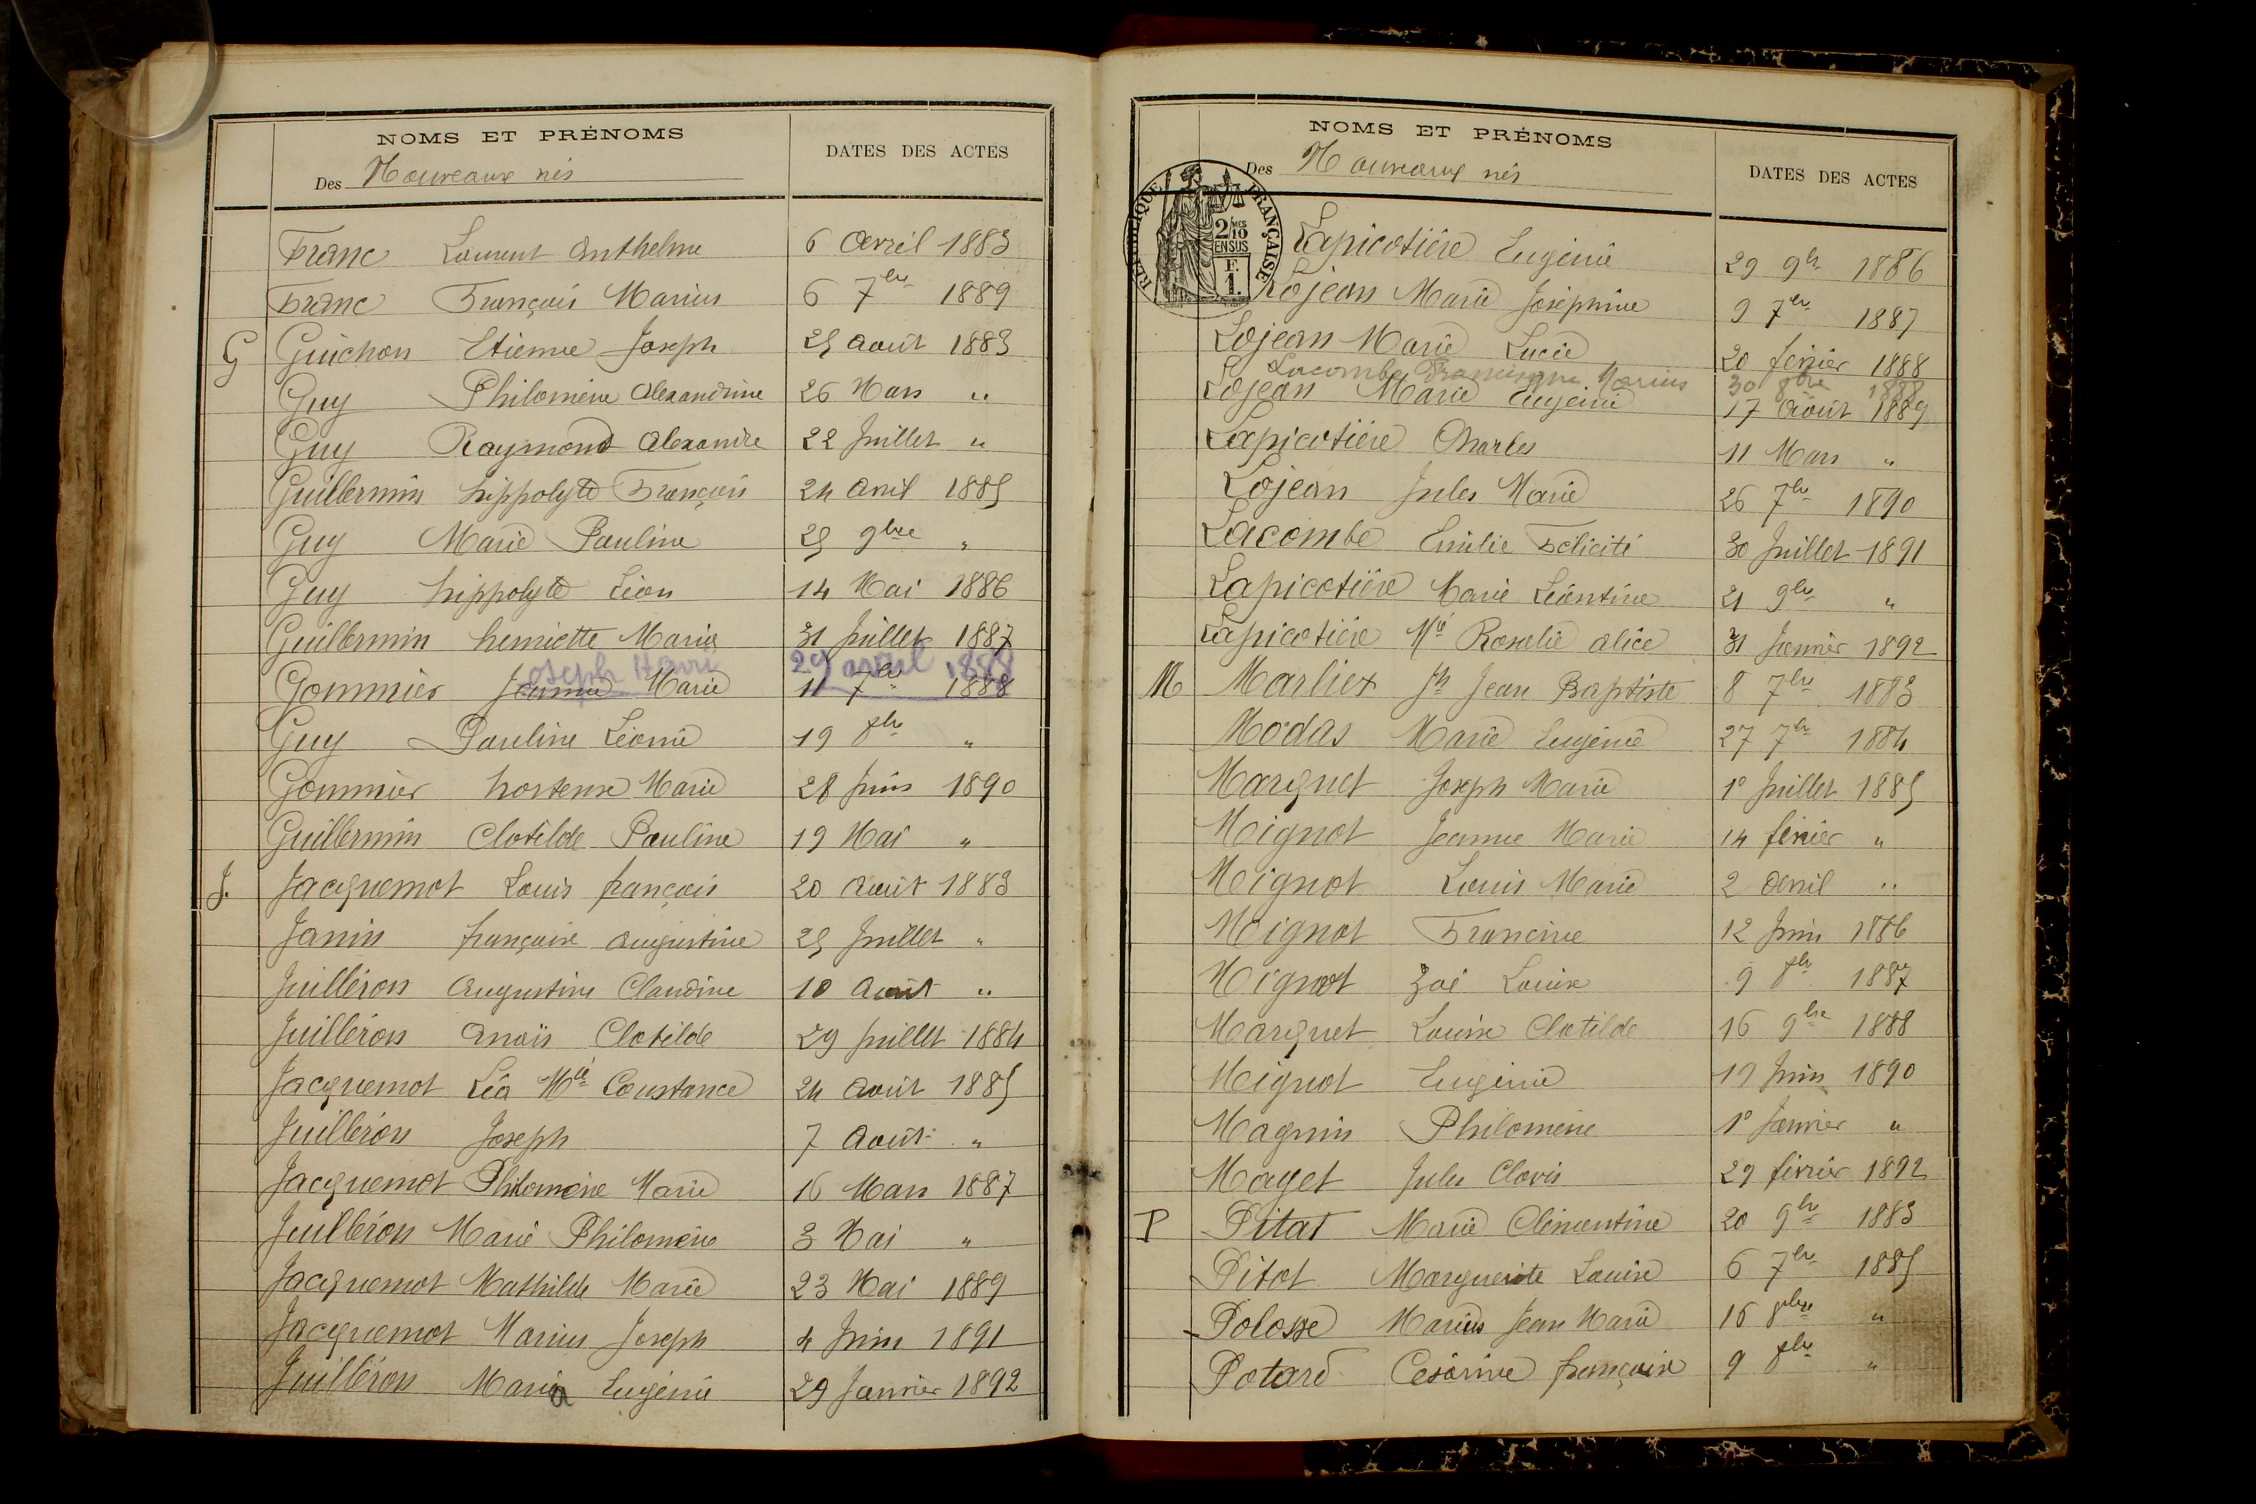 NOMS ET PRÉNOMS
Des Nouveaux nés
DATES DES ACTES
Franc Laurent Anthelme 6 Avril 1883
Franc François Marius 6 7bre 1889
G Guichon Etienne Joseph 25 Août 1883
Guy Philomène Alexandrine 26 Mars "
Guy Raymond Alexandre 22 Juillet "
Guillermin hippolyte François 24 Avril 1885
Guy Marie Pauline 25 9bre "
Guy hippolyte Léon 14 Mai 1886
Guillermin henriette Maria 31 Juillet 1887
Joseph Henri 29 avril 1888
Gommier Jeanne Marie 11 7bre 1888
Guy Pauline Léonie 19 8bre "
Gommier hortense Marie 28 Juin 1890
Guillermin Clotilde Pauline 19 Mai "
J. Jacquemot Louis françois 20 Août 1883
Janin françoise Augustine 25 Juillet "
Juilléron Augustine Claudine 10 Août "
Juilléron Anaïs Clotilde 29 Juillet 1884
Jacquemot Léa Mie Constance 24 Août 1885
Juilléron Joseph 7 Août "
Jacquemot Philomène Marie 16 Mars 1887
Juilléron Marie Philomène 3 Mai "
Jacquemot Mathilde Marie 23 Mai 1889
Jacquemot Marius Joseph 4 Juin 1891
Juilléron Maria Eugénie 29 Janvier 1892
NOMS ET PRÉNOMS
Des Nouveaux nés
DATES DES ACTES
RÉPUBLIQUE FRANÇAISE
2/10 EN SUS
F. 1.
Lapicotière Eugénie 29 9bre 1886
Lojean Marie Joséphine 9 7bre 1887
Lojean Marie Lucie 20 février 1888
Lacombe Francisque Marius 30 8bre 1888
Lojean Marie Eugénie 17 Août 1889
Lapicotière Charles 11 Mars "
Lojean Jules Marie 26 7bre 1890
Lacombe Emilie Félicité 30 Juillet 1891
Lapicotière Marie Léontine 21 9bre "
Lapicotière Mie Roselie Alice 31 Janvier 1892
M Marliex Jh Jean Baptiste 8 7bre 1883
Modas Marie Eugénie 27 7bre 1884
Marquet Joseph Marie 1º Juillet 1885
Mignot Jeanne Marie 14 février "
Mignot Louis Marie 2 Avril "
Mignot Francine 12 Juin 1886
Mignot Zoé Louise 9 8bre 1887
Marquet Louise Clotilde 16 9bre 1888
Mignot Eugénie 19 Juin 1890
Magnin Philomène 1º Janvier "
Maget Jules Clovis 29 février 1892
P Pitat Marie Clémentine 20 9bre 1883
Pitot Marguerite Louise 6 7bre 1885
Polosse Marius Jean Marie 16 8bre "
Potard Césarine françoise 9 8bre "